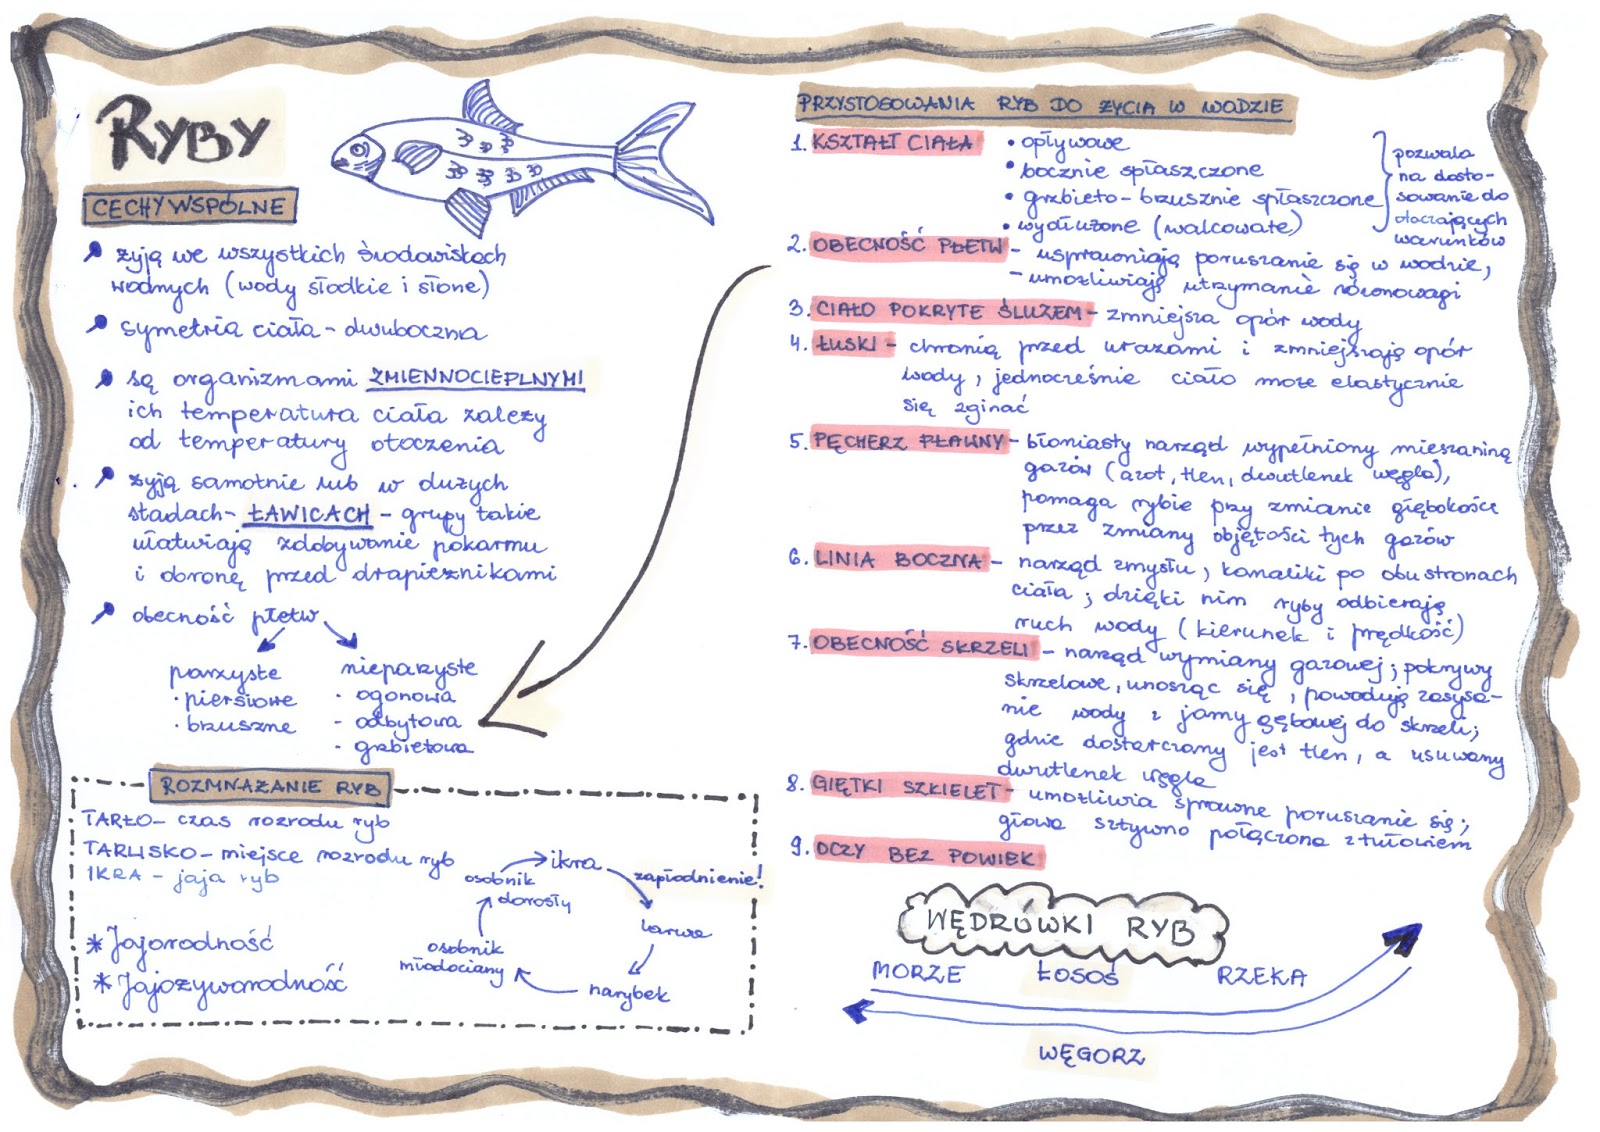 RYBY
CECHY WSPÓLNE
żyją we wszystkich środowiskach
wodnych (wody słodkie i słone)
symetria ciała - dwuboczna
są organizmami ZMIENNOCIEPLNYMI
ich temperatura ciała zależy
od temperatury otoczenia
żyją samotnie lub w dużych
stadach - ŁAWICACH - grupy takie
ułatwiają zdobywanie pokarmu
i obronę przed drapieżnikami
obecność płetw
parzyste
· piersiowe
· brzuszne
nieparzyste
· ogonowa
- odbytowa
- grzbietowa
ROZMNAŻANIE RYB
TARŁO - czas rozrodu ryb
TARLISKO - miejsce rozrodu ryb
IKRA - jaja ryb
* Jajorodność
* Jajożyworodność
ikra
zapłodnienie!
larwa
narybek
osobnik
młodociany
osobnik
dorosły
PRZYSTOSOWANIA RYB DO ŻYCIA W WODZIE
1. KSZTAŁT CIAŁA
• opływowe
• bocznie spłaszczone
• grzbieto-brzusznie spłaszczone
• wydłużone (walcowate)
pozwala
na dosto-
sowanie do
otaczających
warunków
2. OBECNOŚĆ PŁETW - usprawniają poruszanie się w wodzie,
- umożliwiają utrzymanie równowagi
3. CIAŁO POKRYTE ŚLUZEM - zmniejsza opór wody
4. ŁUSKI - chronią przed urazami i zmniejszają opór
wody, jednocześnie ciało może elastycznie
się zginać
5. PĘCHERZ PŁAWNY - błoniasty narząd wypełniony mieszaniną
gazów (azot, tlen, dwutlenek węgla),
pomaga rybie przy zmianie głębokości
przez zmiany objętości tych gazów
6. LINIA BOCZNA - narząd zmysłu, kanaliki po obu stronach
ciała; dzięki nim ryby odbierają
ruch wody (kierunek i prędkość)
7. OBECNOŚĆ SKRZELI - narząd wymiany gazowej; pokrywy
skrzelowe, unosząc się, powodują zasysa-
nie wody z jamy gębowej do skrzeli;
gdzie dostarczany jest tlen, a usuwany
dwutlenek węgla
8. GIĘTKI SZKIELET - umożliwia sprawne poruszanie się;
głowa sztywno połączona z tułowiem
9. OCZY BEZ POWIEK
WĘDRÓWKI RYB
MORZE ŁOSOŚ RZEKA
WĘGORZ